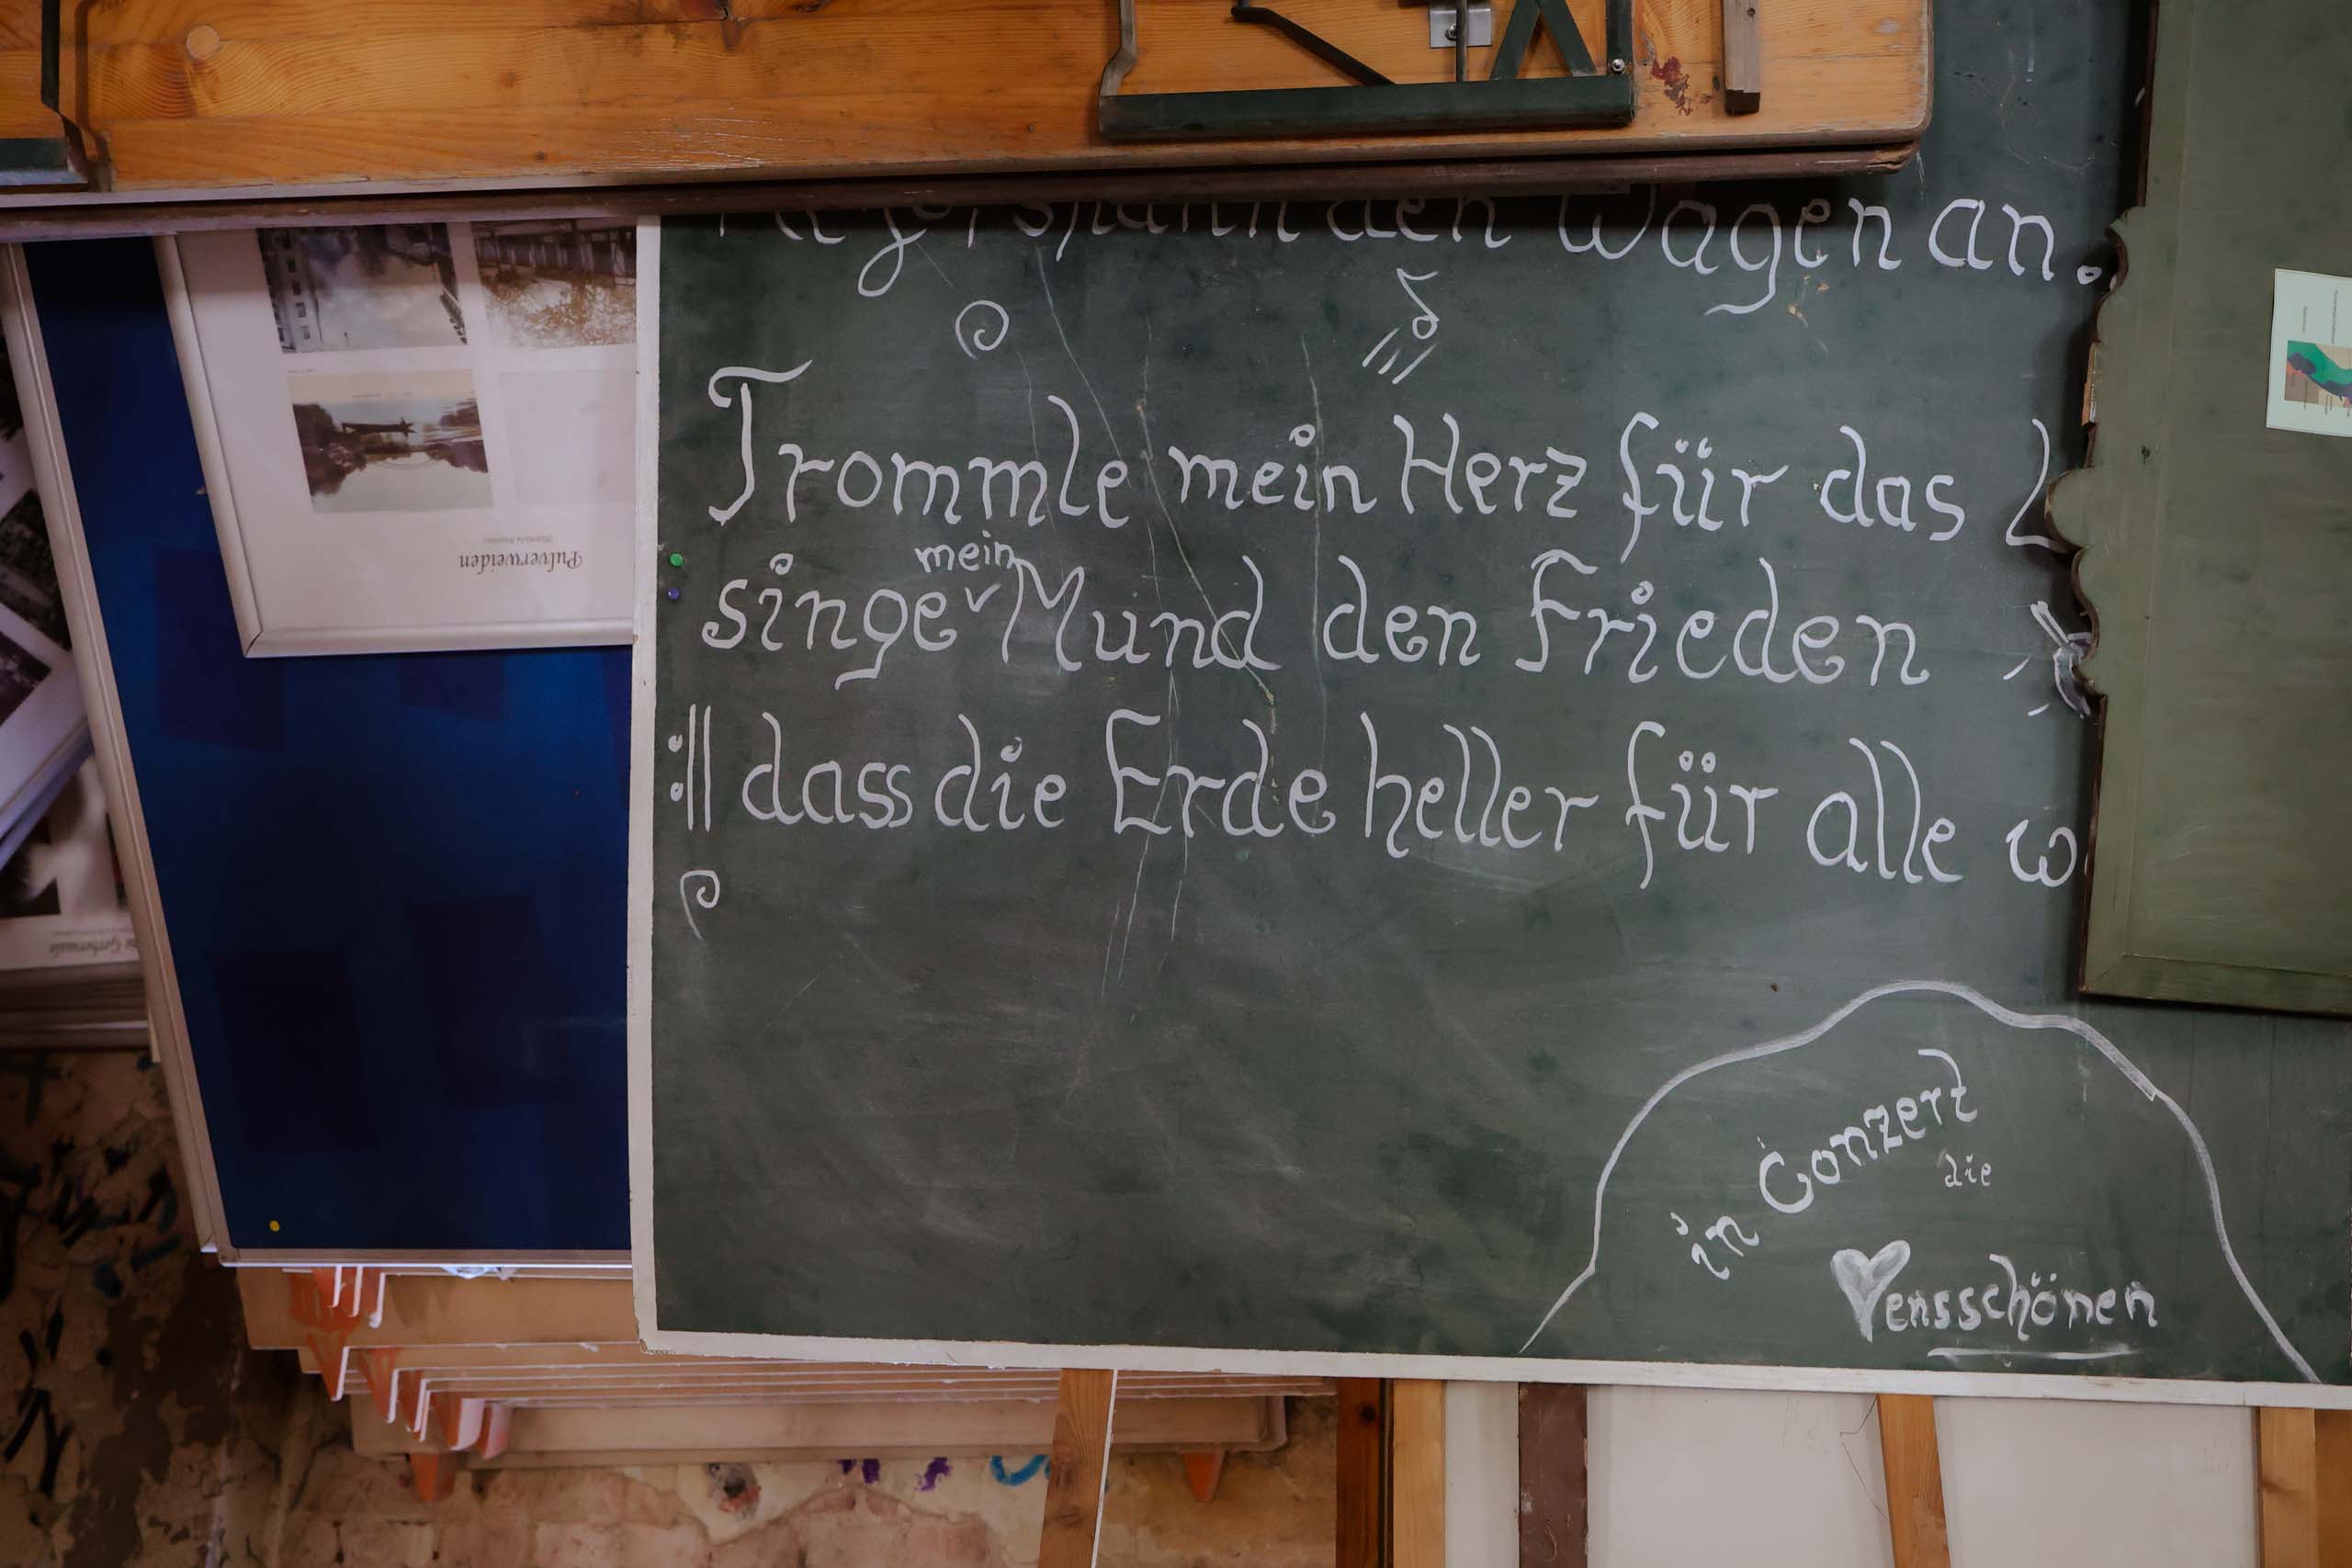 den Wagen an.
Trommle mein Herz für das L
mein
singe Mund den Frieden
dass die Erde heller für alle w
in Conzert
die
ensschönen
Pulverweiden